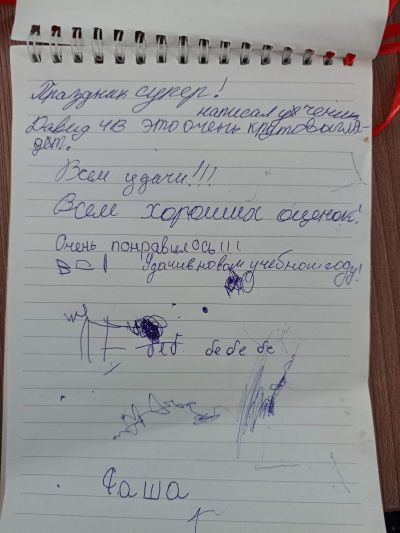 Праздник супер!
написал ученик
Давид 4В это очень круто выгля-
дит.
Всем удачи!!!
Всем хороших оценок!
Очень понравилось!!!
Удачи в новом учебном году!
бе бе бе
Саша